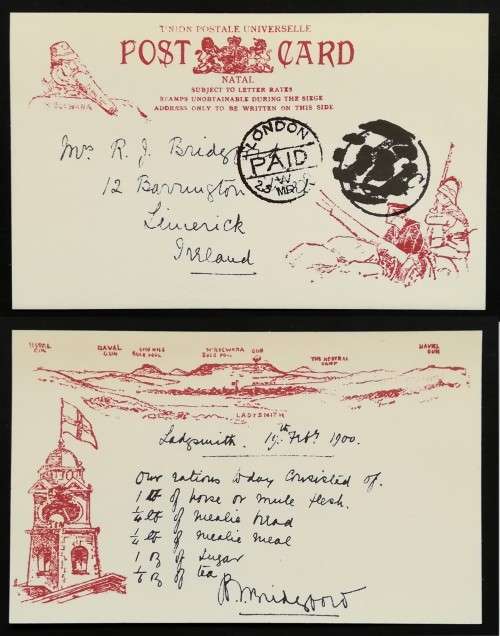 UNION POSTALE UNIVERSELLE
POST CARD
NATAL
SUBJECT TO LETTER RATES
STAMPS UNOBTAINABLE DURING THE SIEGE
ADDRESS ONLY TO BE WRITTEN ON THIS SIDE
Mrs R. J.
12 Barrington
Limerick
Ireland
LONDON
PAID
NAVAL GUN
GUN
THE NEUTRAL CAMP
NAVAL GUN
LADYSMITH
Ladysmith. 19th Feby 1900.
Our rations today consisted of.
1 lb of horse or mule flesh.
1/4 lb of mealie bread
1/4 lb of mealie meal
1 oz of sugar
1/6 oz of tea